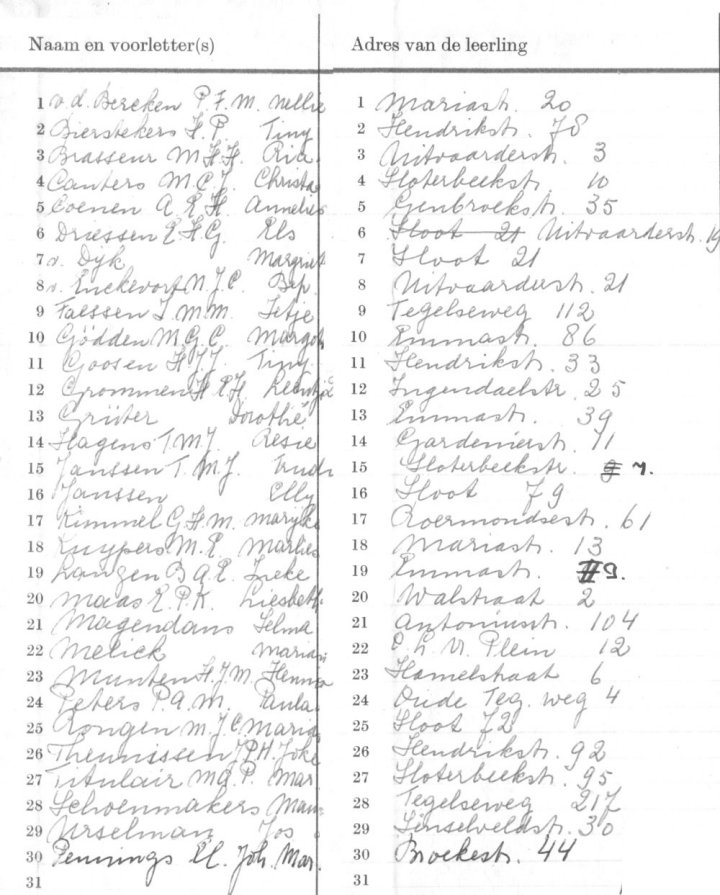 Naam en voorletter(s) Adres van de leerling
1 v.d. Bercken P.F.M. Nellie 1 Mariastr. 20
2 Bierstekers H.P. Tiny 2 Hendrikstr. 78
3 Brasseur M.H.H. Ria 3 Uitvaarderstr. 3
4 Canters M.C.J. Christa 4 Sloterbeekstr. 10
5 Coenen A.E.H. Annelies 5 Genbroekstr. 35
6 Driessen E.H.G. Els 6 Sloot 21 Uitvaarderstr. 19
7 v. Dyk Margriet 7 Sloot 21
8 v. Enckevort N.J.C. Bep 8 Uitvaarderstr. 21
9 Faessen J.M.M. Jetje 9 Tegelseweg 112
10 Gödden M.G.C. Margot 10 Emmastr. 86
11 Goosen H.J.J. Tiny 11 Hendrikstr. 33
12 Grommen H.E.H. 12 Ingendaelstr. 25
13 Grüter Dorothé 13 Emmastr. 39
14 Hagens T.M.J. Resie 14 Gardenierstr. 11
15 Janssen T.M.J. Trudi 15 Sloterbeekstr. 7.
16 Janssen Elly 16 Sloot 79
17 Kimmel G.H.M. Maryke 17 Roermondsestr. 61
18 Kuypers M.E. Marlies 18 Mariastr. 13
19 Langen B.A.E. Ineke 19 Emmastr. 9.
20 Maas E.P.K. Liesbeth 20 Walstraat 2
21 Magendans Selma 21 Antoniusstr. 104
22 Melick Marian 22 O.L.V. Plein 12
23 Munten H.J.M. Henny 23 Hamelstraat 6
24 Peters P.A.M. Paula 24 Oude Teg. weg 4
25 Rongen M.J.C. Maria 25 Sloot 72
26 Theunissen J.P.H. Joke 26 Hendrikstr. 92
27 Titulair M.G.P. Mar 27 Sloterbeekstr. 95
28 Schoenmakers 28 Tegelseweg 217
29 Urselman Jos 29 Ginselveldstr. 30
30 Pennings El. Joh. Mar. 30 Broekestr. 44
31 31